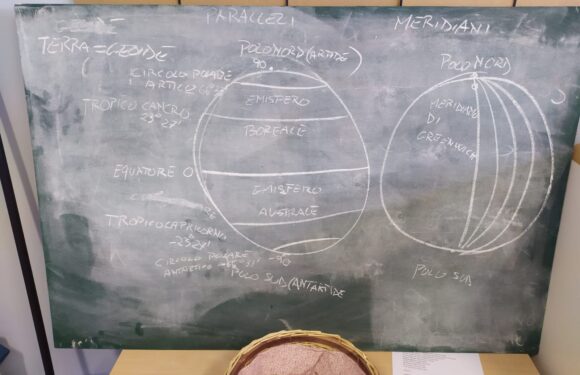 PARALLELI
MERIDIANI
TERRA = GEOIDE
POLO NORD (ARTIDE)
90
CIRCOLO POLARE
ARTICO
TROPICO CANCRO
23° 27'
EMISFERO
BOREALE
EQUATORE 0
EMISFERO
AUSTRALE
TROPICO CAPRICORNO
-23 27'
CIRCOLO POLARE
ANTARTICO
-90
POLO SUD (ANTARTIDE
POLO NORD
MERIDIANO
DI
GREENWICH
POLO SUD